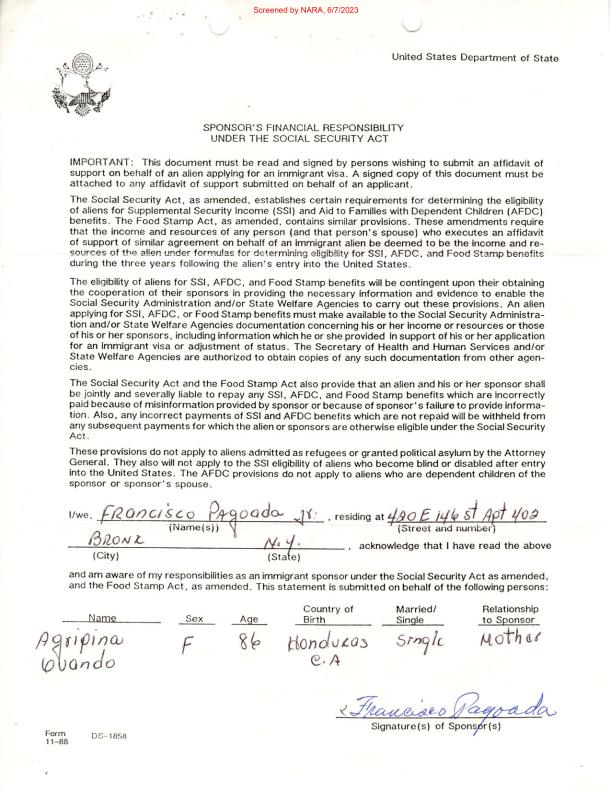 Screened by NARA, 6/7/2023
United States Department of State
SPONSOR'S FINANCIAL RESPONSIBILITY
UNDER THE SOCIAL SECURITY ACT
IMPORTANT: This document must be read and signed by persons wishing to submit an affidavit of
support on behalf of an alien applying for an immigrant visa. A signed copy of this document must be
attached to any affidavit of support submitted on behalf of an applicant.
The Social Security Act, as amended, establishes certain requirements for determining the eligibility
of aliens for Supplemental Security Income (SSI) and Aid to Families with Dependent Children (AFDC)
benefits. The Food Stamp Act, as amended, contains similar provisions. These amendments require
that the income and resources of any person (and that person's spouse) who executes an affidavit
of support of similar agreement on behalf of an immigrant alien be deemed to be the income and re-
sources of the alien under formulas for determining eligibility for SSI, AFDC, and Food Stamp benefits
during the three years following the alien's entry into the United States.
The eligibility of aliens for SSI, AFDC, and Food Stamp benefits will be contingent upon their obtaining
the cooperation of their sponsors in providing the necessary information and evidence to enable the
Social Security Administration and/or State Welfare Agencies to carry out these provisions. An alien
applying for SSI, AFDC, or Food Stamp benefits must make available to the Social Security Administra-
tion and/or State Welfare Agencies documentation concerning his or her income or resources or those
of his or her sponsors, including information which he or she provided in support of his or her application
for an immigrant visa or adjustment of status. The Secretary of Health and Human Services and/or
State Welfare Agencies are authorized to obtain copies of any such documentation from other agen-
cies.
The Social Security Act and the Food Stamp Act also provide that an alien and his or her sponsor shall
be jointly and severally liable to repay any SSI, AFDC, and Food Stamp benefits which are incorrectly
paid because of misinformation provided by sponsor or because of sponsor's failure to provide informa-
tion. Also, any incorrect payments of SSI and AFDC benefits which are not repaid will be withheld from
any subsequent payments for which the alien or sponsors are otherwise eligible under the Social Security
Act.
These provisions do not apply to aliens admitted as refugees or granted political asylum by the Attorney
General. They also will not apply to the SSI eligibility of aliens who become blind or disabled after entry
into the United States. The AFDC provisions do not apply to aliens who are dependent children of the
sponsor or sponsor's spouse.
I/we, Francisco Pagoada Jr. , residing at 420 E 146 st Apt 402
(Name(s)) (Street and number)
Bronx N.Y. , acknowledge that I have read the above
(City) (State)
and am aware of my responsibilities as an immigrant sponsor under the Social Security Act as amended,
and the Food Stamp Act, as amended. This statement is submitted on behalf of the following persons:
Name Sex Age Country of Birth Married/Single Relationship to Sponsor
Agripina F 86 Honduras Single Mother
Ovando C.A
Francisco Pagoada
Signature(s) of Sponsor(s)
Form
11-88 DS-1858